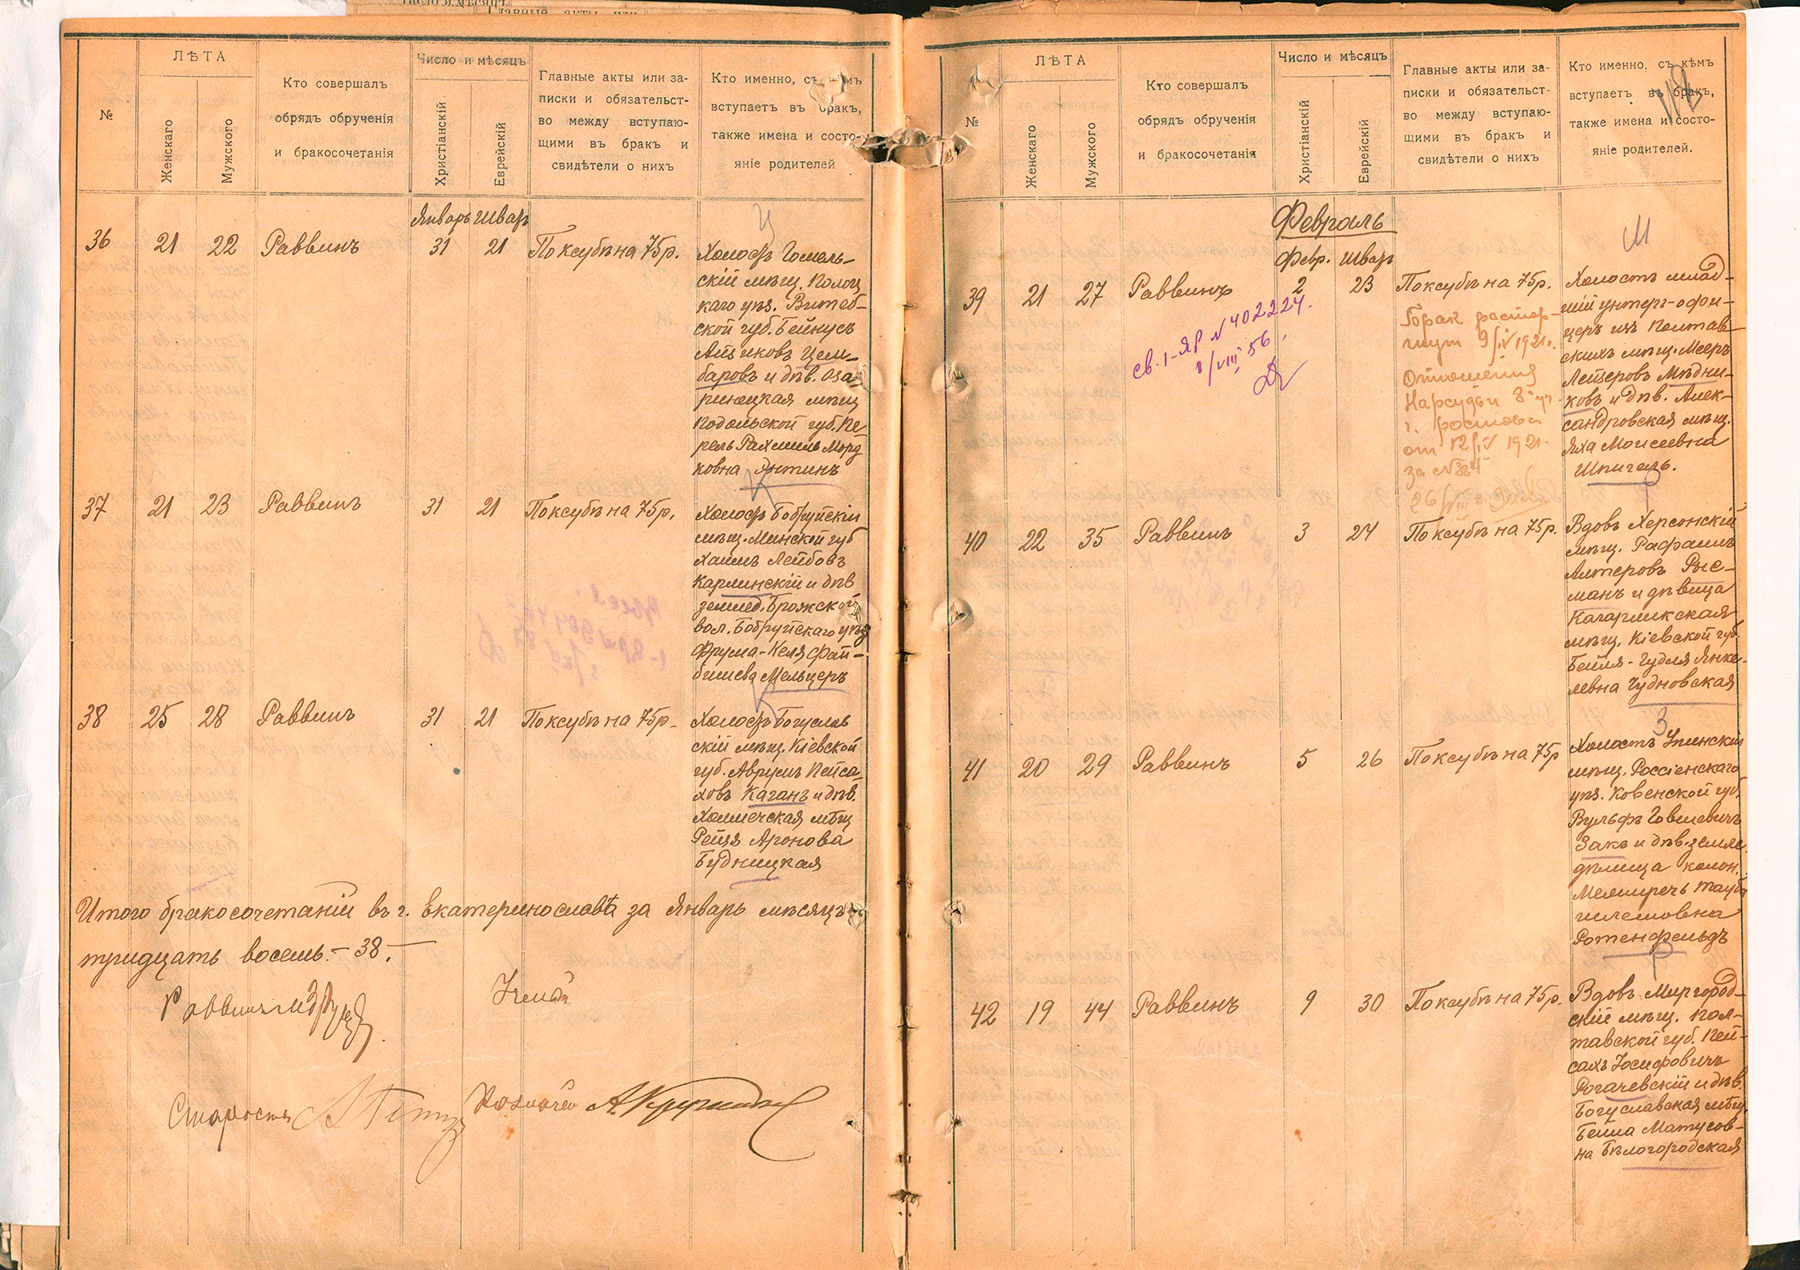 №
ЛѢТА
Женскаго
Мужского
Кто совершалъ
обрядъ обрученія
и бракосочетанія
Число и мѣсяцъ
Христіанскій
Еврейскій
Главные акты или за-
писки и обязательст-
во между вступаю-
щими въ бракъ и
свидѣтели о нихъ
Кто именно, съ кѣмъ
вступаетъ въ бракъ,
также имена и состо-
яніе родителей
Январь Шватъ
36 21 22 Раввинъ 31 21 По ксубѣ на 75 р.
Холост Гомель-
скій мѣщ. Полоц
каго уѣз. Витеб-
ской губ. Бейнусъ
Айзиковъ Цем-
баровъ и дѣв. Оза-
ринецкая мѣщ
Подольской губ. Пе-
рель Рахмиль Морд
ковна Янтинъ
37 21 23 Раввинъ 31 21 По ксубѣ на 75 р.
Холост Бобруйскій
мѣщ. Минской губ
Хаимъ Лейбовъ
Карлинскій и дѣв
землед. Брожской
вол. Бобруйскаго уѣз
Фрума-Келя Фай-
бишева Мельцеръ
38 25 28 Раввинъ 31 21 По ксубѣ на 75 р.
Холост Богуслав
скій мѣщ. Кіевской
губ. Аврумъ Пейса-
ховъ Каганъ и дѣв.
Холмечская мѣщ
Рейзя Аронова
Будницкая
Итого бракосочетаній въ г. Екатеринославѣ за Январь мѣсяцъ
тридцать восемь. – 38. –
Раввинъ
Староста
Казначей
№
ЛѢТА
Женскаго
Мужского
Кто совершалъ
обрядъ обрученія
и бракосочетанія
Число и мѣсяцъ
Христіанскій
Еврейскій
Главные акты или за-
писки и обязательст-
во между вступаю-
щими въ бракъ и
свидѣтели о нихъ
Кто именно, съ кѣмъ
вступаетъ въ бракъ,
также имена и состо-
яніе родителей.
Февраль
М
Февр. Шватъ
39 21 27 Раввинъ 2 23 По ксубѣ на 75 р.
св. 1-ЯР № 402224.
1/VIII 56.
Брак растор-
гнут 9/IV 1921 г.
Отношения
Нарсудьи 8 уч.
г. Ростова
от 12/IV 1921.
Холостъ млад-
шій унтеръ-офи-
церъ изъ Полтав-
скихъ мѣщ. Мееръ
Лейзеровъ Мѣдни-
ковъ и дѣв. Алек-
сандровская мѣщ.
Яха Моисеевна
Шпигель.
40 22 35 Раввинъ 3 24 По ксубѣ на 75 р.
Вдовъ Херсонскій
мѣщ. Рафаилъ
Алтеровъ Рыс-
манъ и дѣвица
Кагарликская
мѣщ. Кіевской губ.
Бейля-Гудля Янке-
левна Чудновская
З
41 20 29 Раввинъ 5 26 По ксубѣ на 75 р
Холостъ Упинскій
мѣщ. Россіенскаго
уѣз. Ковенской губ.
Вульфъ Говшевичъ
Закъ и дѣв. земле-
дѣлица колон.
Межиречъ Тауба
Шлемовна
Ротенфельдъ
Р
42 19 44 Раввинъ 9 30 По ксубѣ на 75 р.
Вдовъ Миргород-
скій мѣщ. Пол-
тавской губ. Пей-
сахъ Іосифовичъ
Рогачевскій и дѣв.
Богуславская мѣщ.
Бейла Матусов-
на Бѣлогородская